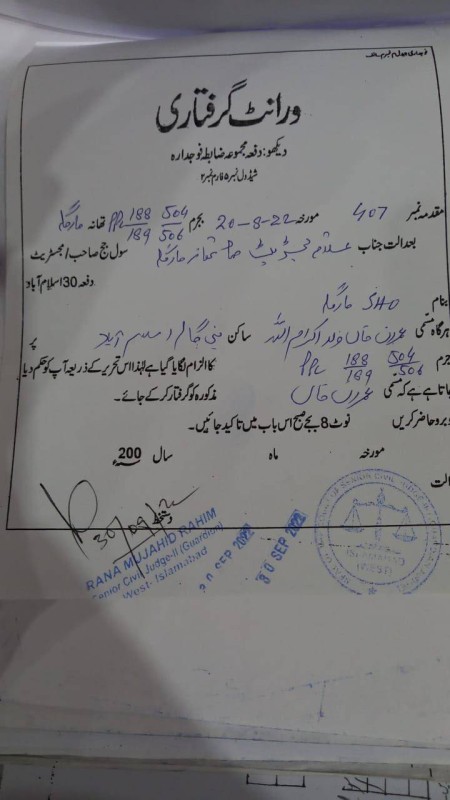 ورانٹ گرفتاری
دیکھو: دفعہ مجموعہ ضابطہ فوجداره
شیڈول نمبر ۵ فارم نمبر ۲
مقدمہ نمبر 407 مورخہ 20-8-22 بجرم 504/506 188/189 PPC تھانہ مارگلہ
بعدالت جناب علاقہ مجسٹریٹ صاحب تھانہ مارگلہ سول جج صاحب/مجسٹریٹ
دفعہ 30 اسلام آباد
بنام SHO مارگلہ
ہرگاہ مسمّی عمران خان ولد اکرام اللہ ساکن بنی گالہ اسلام آباد پر
جرم 504/506 188/189 PPC کا الزام لگایا گیا ہے لہٰذا اس تحریر کے ذریعہ آپ کو حکم دیا
جاتا ہے کہ مسمّی عمران خان مذکورہ کو گرفتار کر کے جائے۔
روبرو حاضر کریں نوٹ 8 بجے صبح اس باب میں تاکید جائیں۔
مورخہ ماہ سال 200
دستخط
30/09/22
RANA MUJAHID RAHIM
Senior Civil Judge-II (Guardian)
West-Islamabad
30 SEP 2022
30 SEP 2022